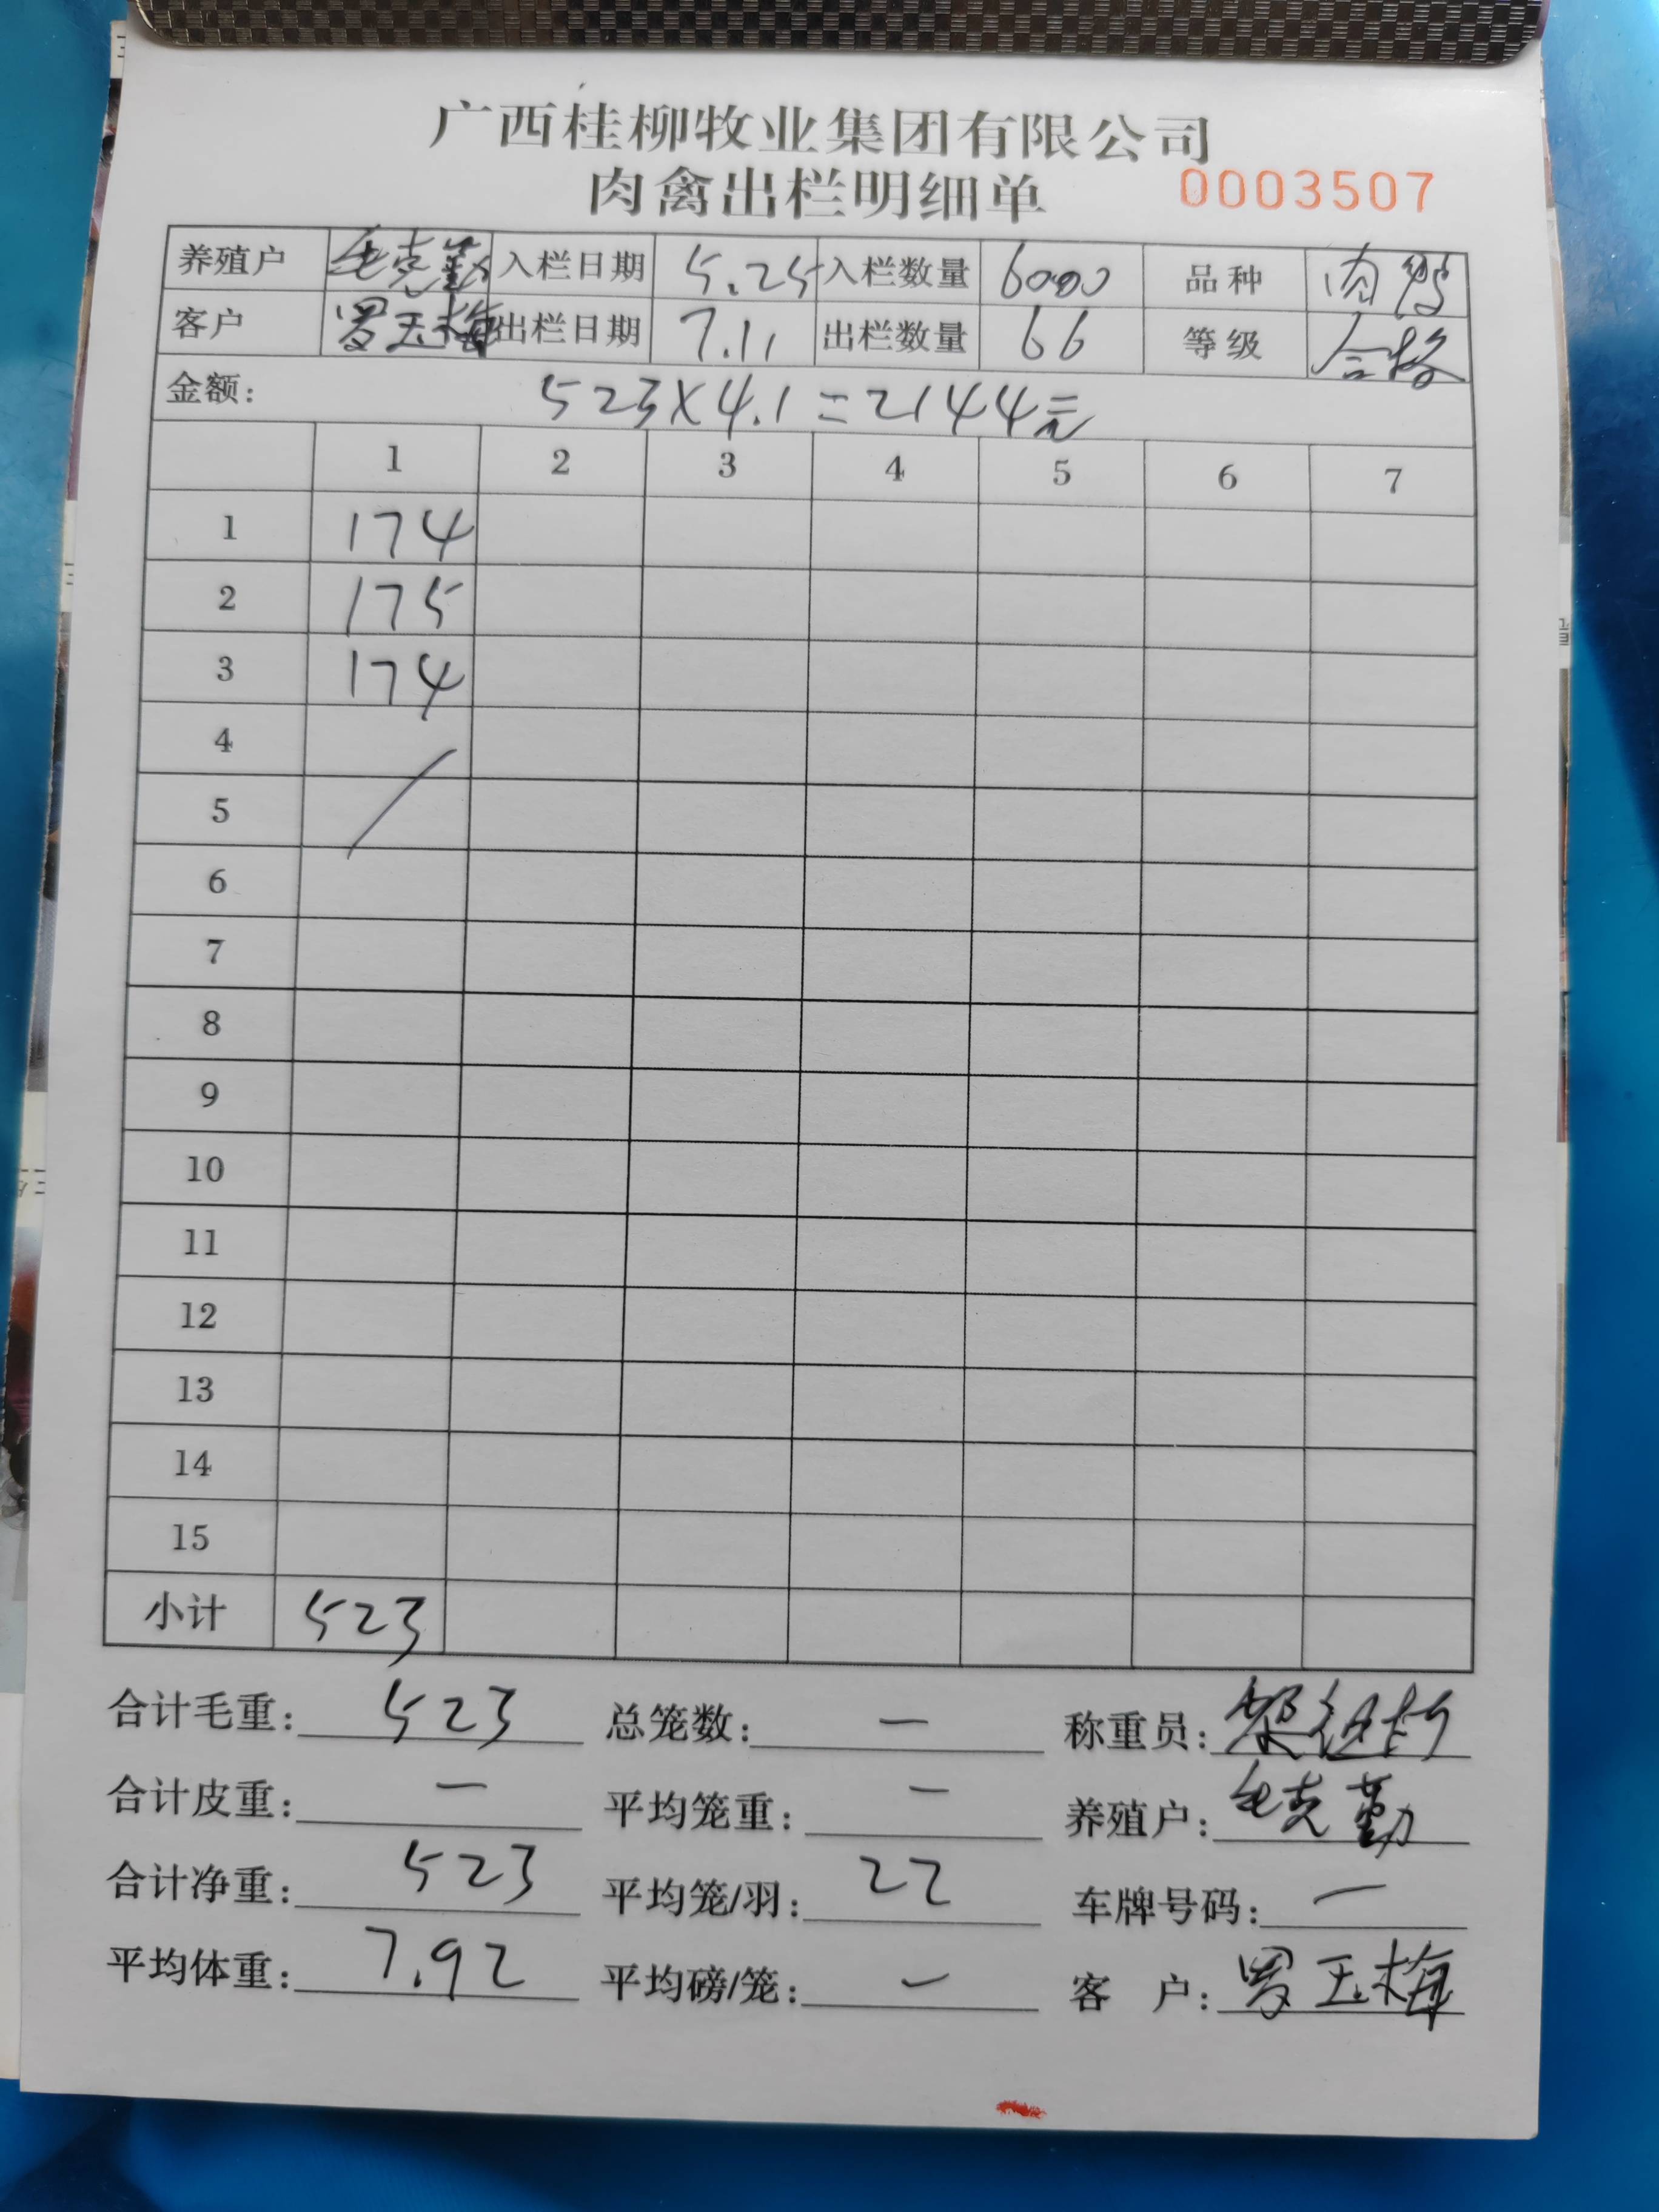 广西桂柳牧业集团有限公司
肉禽出栏明细单 0003507
养殖户 毛克勤 入栏日期 5.25 入栏数量 6000 品种 肉鸭
客户 罗玉梅 出栏日期 7.11 出栏数量 66 等级 合格
金额: 523×4.1=2144元
1 2 3 4 5 6 7
1 174
2 175
3 174
4
5
6
7
8
9
10
11
12
13
14
15
小计 523
合计毛重: 523 总笼数: — 称重员:
合计皮重: — 平均笼重: — 养殖户: 毛克勤
合计净重: 523 平均笼/羽: 22 车牌号码: —
平均体重: 7.92 平均磅/笼: — 客 户: 罗玉梅